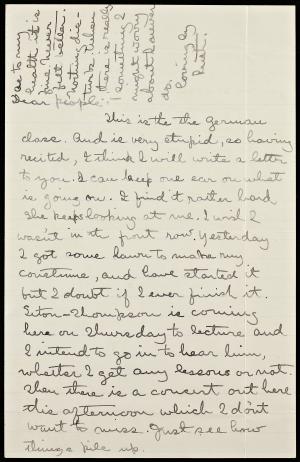 Dear people:
This is the the German
class. And is very stupid, so having
recited, I think I will write a letter
to you. I can keep one ear on what
is going on. I find it rather hard
She keeps looking at me. I wish I
wasn't in the front row. Yesterday
I got some lawn to make my
costume, and have started it
but I doubt if I ever finish it.
Seton-Thompson is coming
here on Thursday to lecture and
I intend to go in to hear him,
whether I get any lessons or not.
Then there is a concert out here
this afternoon which I don't
want to miss. Just see how
things pile up.
As to my
health it is
fine never
felt better.
Nothing dis-
turbs when
there is really
something I
might worry
about however
do.
Lovingly